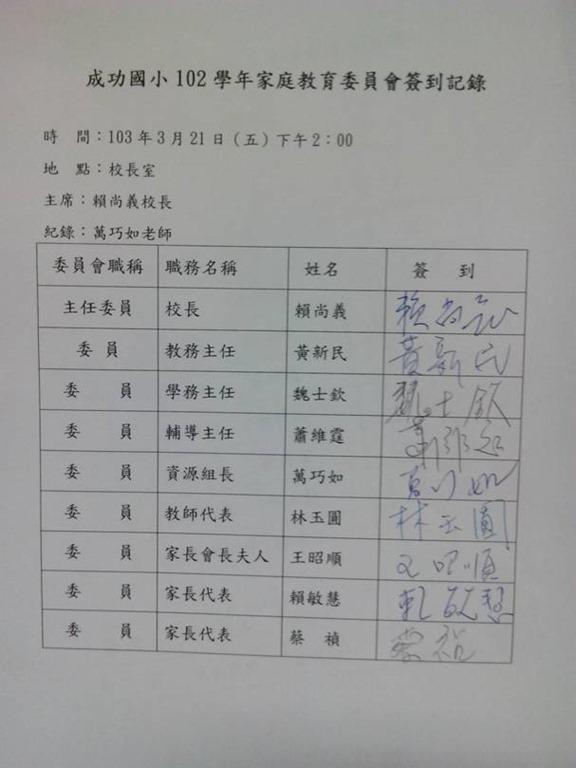 成功國小 102 學年家庭教育委員會簽到記錄
時　間：103 年 3 月 21 日（五）下午 2：00
地　點：校長室
主席：賴尚義校長
紀錄：萬巧如老師
委員會職稱 職務名稱 姓名 簽　到
主任委員 校長 賴尚義 賴尚義
委　員 教務主任 黃新民 黃新民
委　員 學務主任 魏士欽 魏士欽
委　員 輔導主任 蕭維霆
委　員 資源組長 萬巧如 萬巧如
委　員 教師代表 林玉圓 林玉圓
委　員 家長會長夫人 王昭順 王昭順
委　員 家長代表 賴敏慧 賴敏慧
委　員 家長代表 蔡　禎